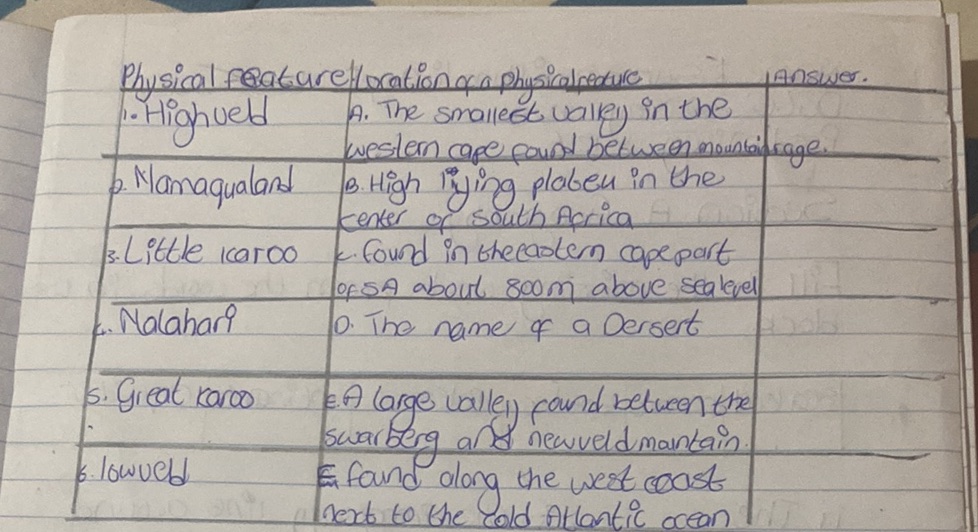 Physical feature Location of a physical feature Answer.
1. Highveld A. The smallest valley in the
western cape found between mountain rage.
2. Namaqualand B. High lying plateu in the
center of South Africa
3. Little karoo C. found in the eastern cape part
of SA about 800m above sea level
4. Nalahari D. The name of a Dersert
5. Great karoo E. A large valley found between the
swarberg and newveld mantain.
6. lowveld F. found along the west coast
next to the cold Atlantic ocean